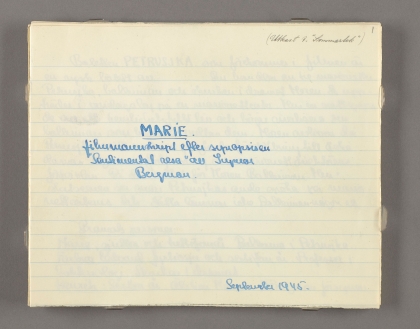 1
(Utkast t. "Sommarlek")
MARIE.
filmmanuskript efter synopsisen
"Sentimental resa" av Ingmar
Bergman.
September 1945.